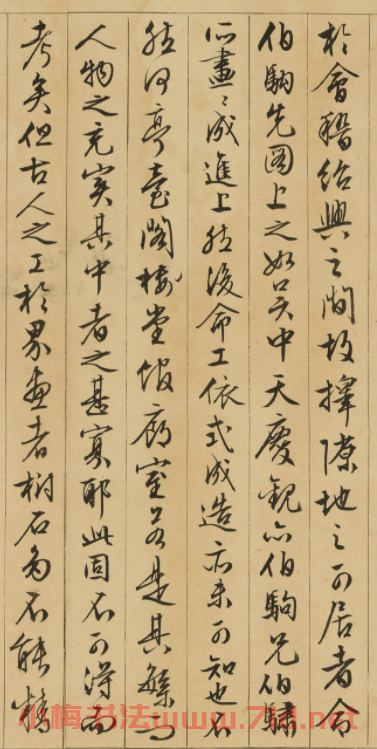 於會稽紹興之間故擇隙地之可居者命
伯駒先圖上之如吳中天慶觀亦伯駒兄伯驌
所畫畫成進上然後命工依式成造亦未可知也不
然何亭臺閣樓堂館廊室若是其緐而
人物之充實其中者之甚寡耶此固不可得而
考矣但古人之工於界畫者樹石多不能精
小梅书法www.7M.net